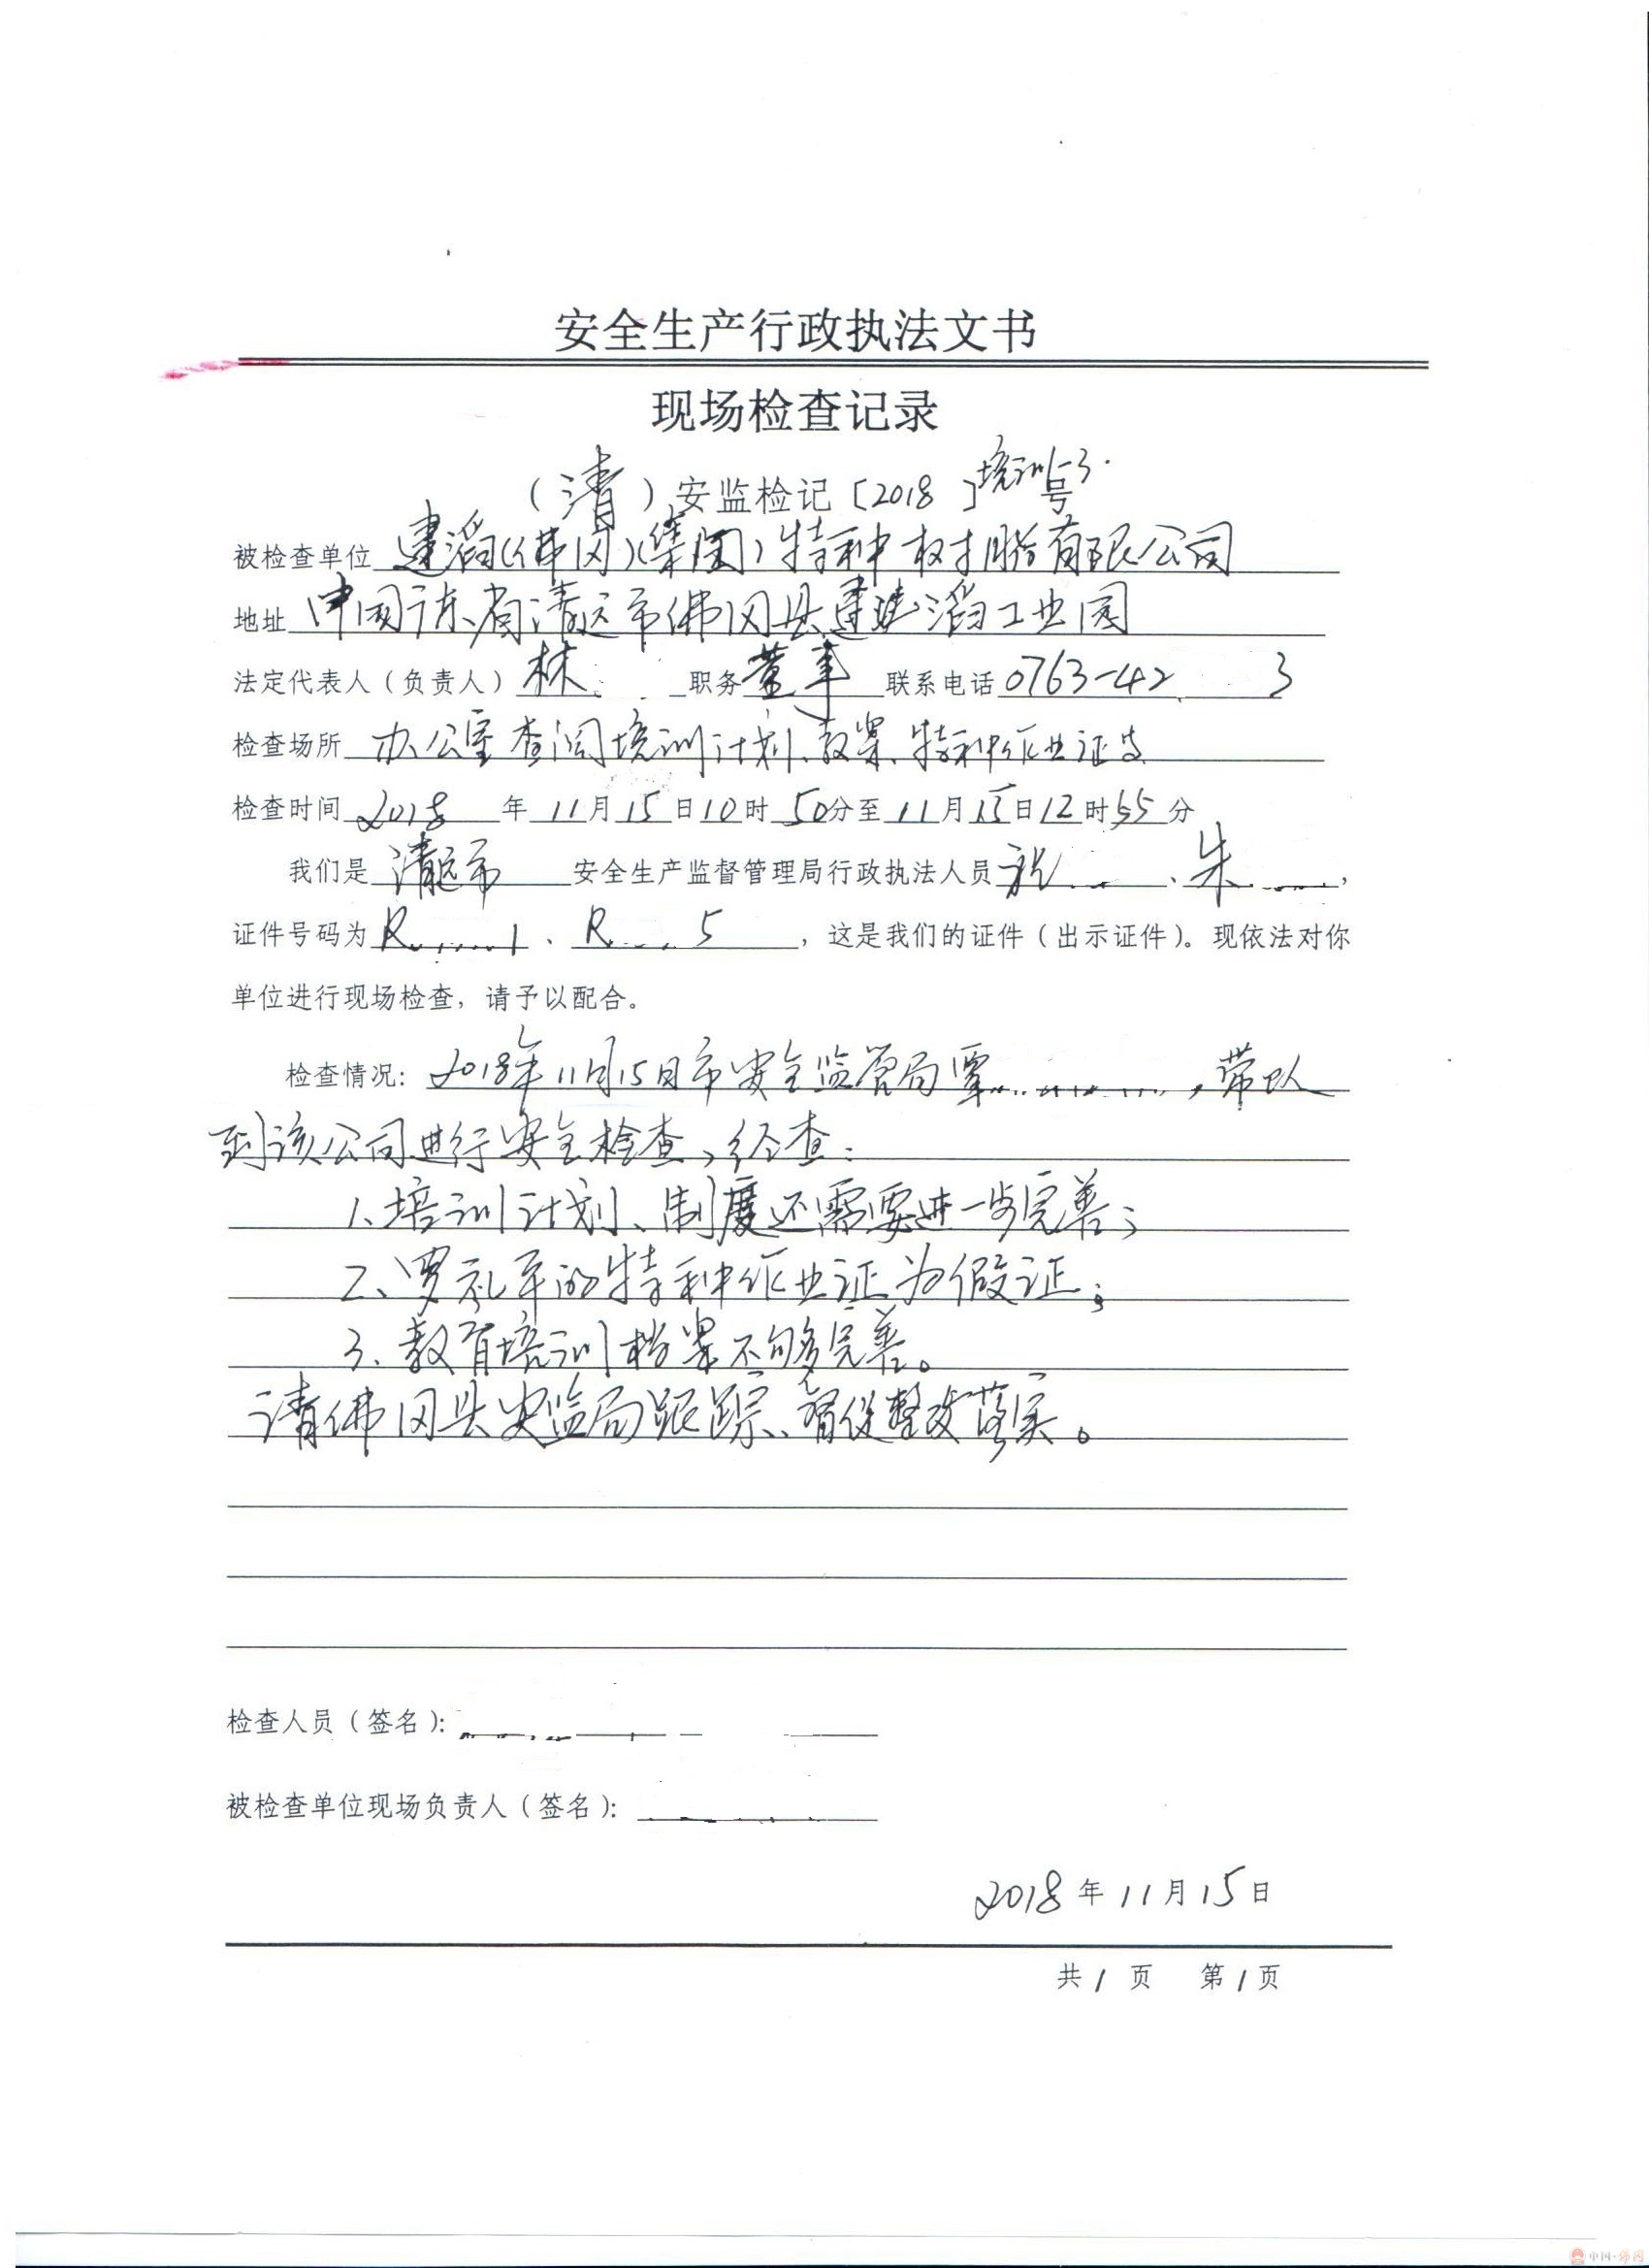 安全生产行政执法文书
现场检查记录
（清）安监检记〔2018〕培训1-3号
被检查单位 建滔(佛冈)(集团)特种树脂有限公司
地址 中国广东省清远市佛冈县建滔工业园
法定代表人（负责人）林 职务 董事 联系电话 0763-42 3
检查场所 办公室查阅培训计划、教案、特种作业证书
检查时间 2018 年 11 月 15 日 10 时 50 分至 11 月 15 日 12 时 55 分
我们是 清远市 安全生产监督管理局行政执法人员 、朱 ，
证件号码为 R 1、R 5 ，这是我们的证件（出示证件）。现依法对你
单位进行现场检查，请予以配合。
检查情况：2018年11月15日市安全监管局覃 ，带队
到该公司进行安全检查，经查：
1、培训计划、制度还需要进一步完善；
2、罗礼军的特种作业证为假证；
3、教育培训档案不够完善。
请佛冈县安监局跟踪、督促整改落实。
检查人员（签名）：
被检查单位现场负责人（签名）：
2018 年 11 月 15 日
共 1 页 第 1 页
中国·佛冈